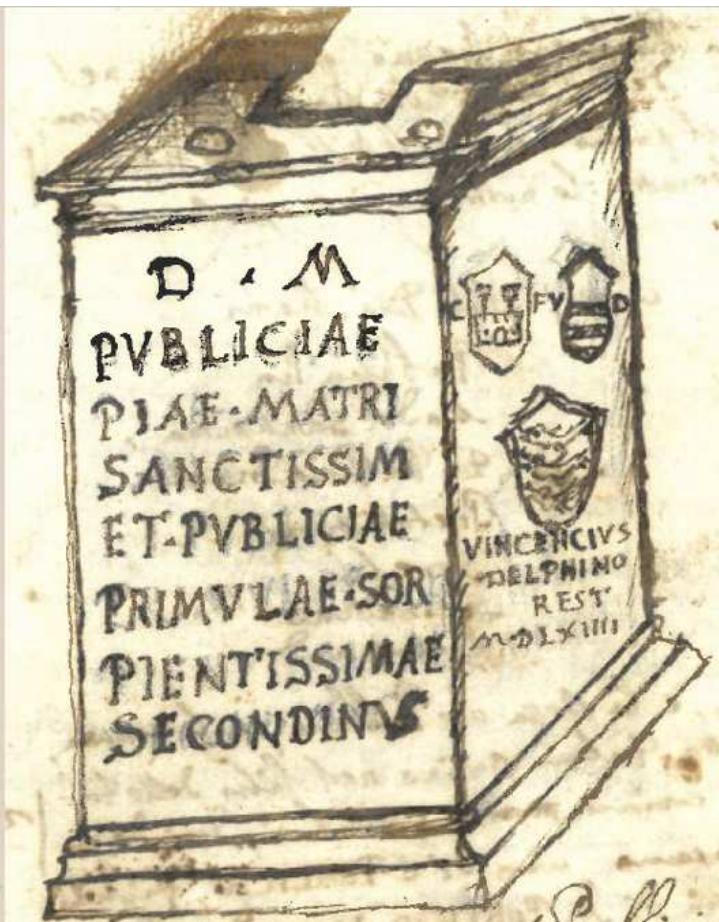 D · M
PVBLICIAE
PIAE·MATRI
SANCTISSIM
ET·PVBLICIAE
PRIMVLAE·SOR
PIENTISSIMAE
SECONDINVS
C F V D
VINCENCIVS
DELPHINO
REST
M·DLXIIII